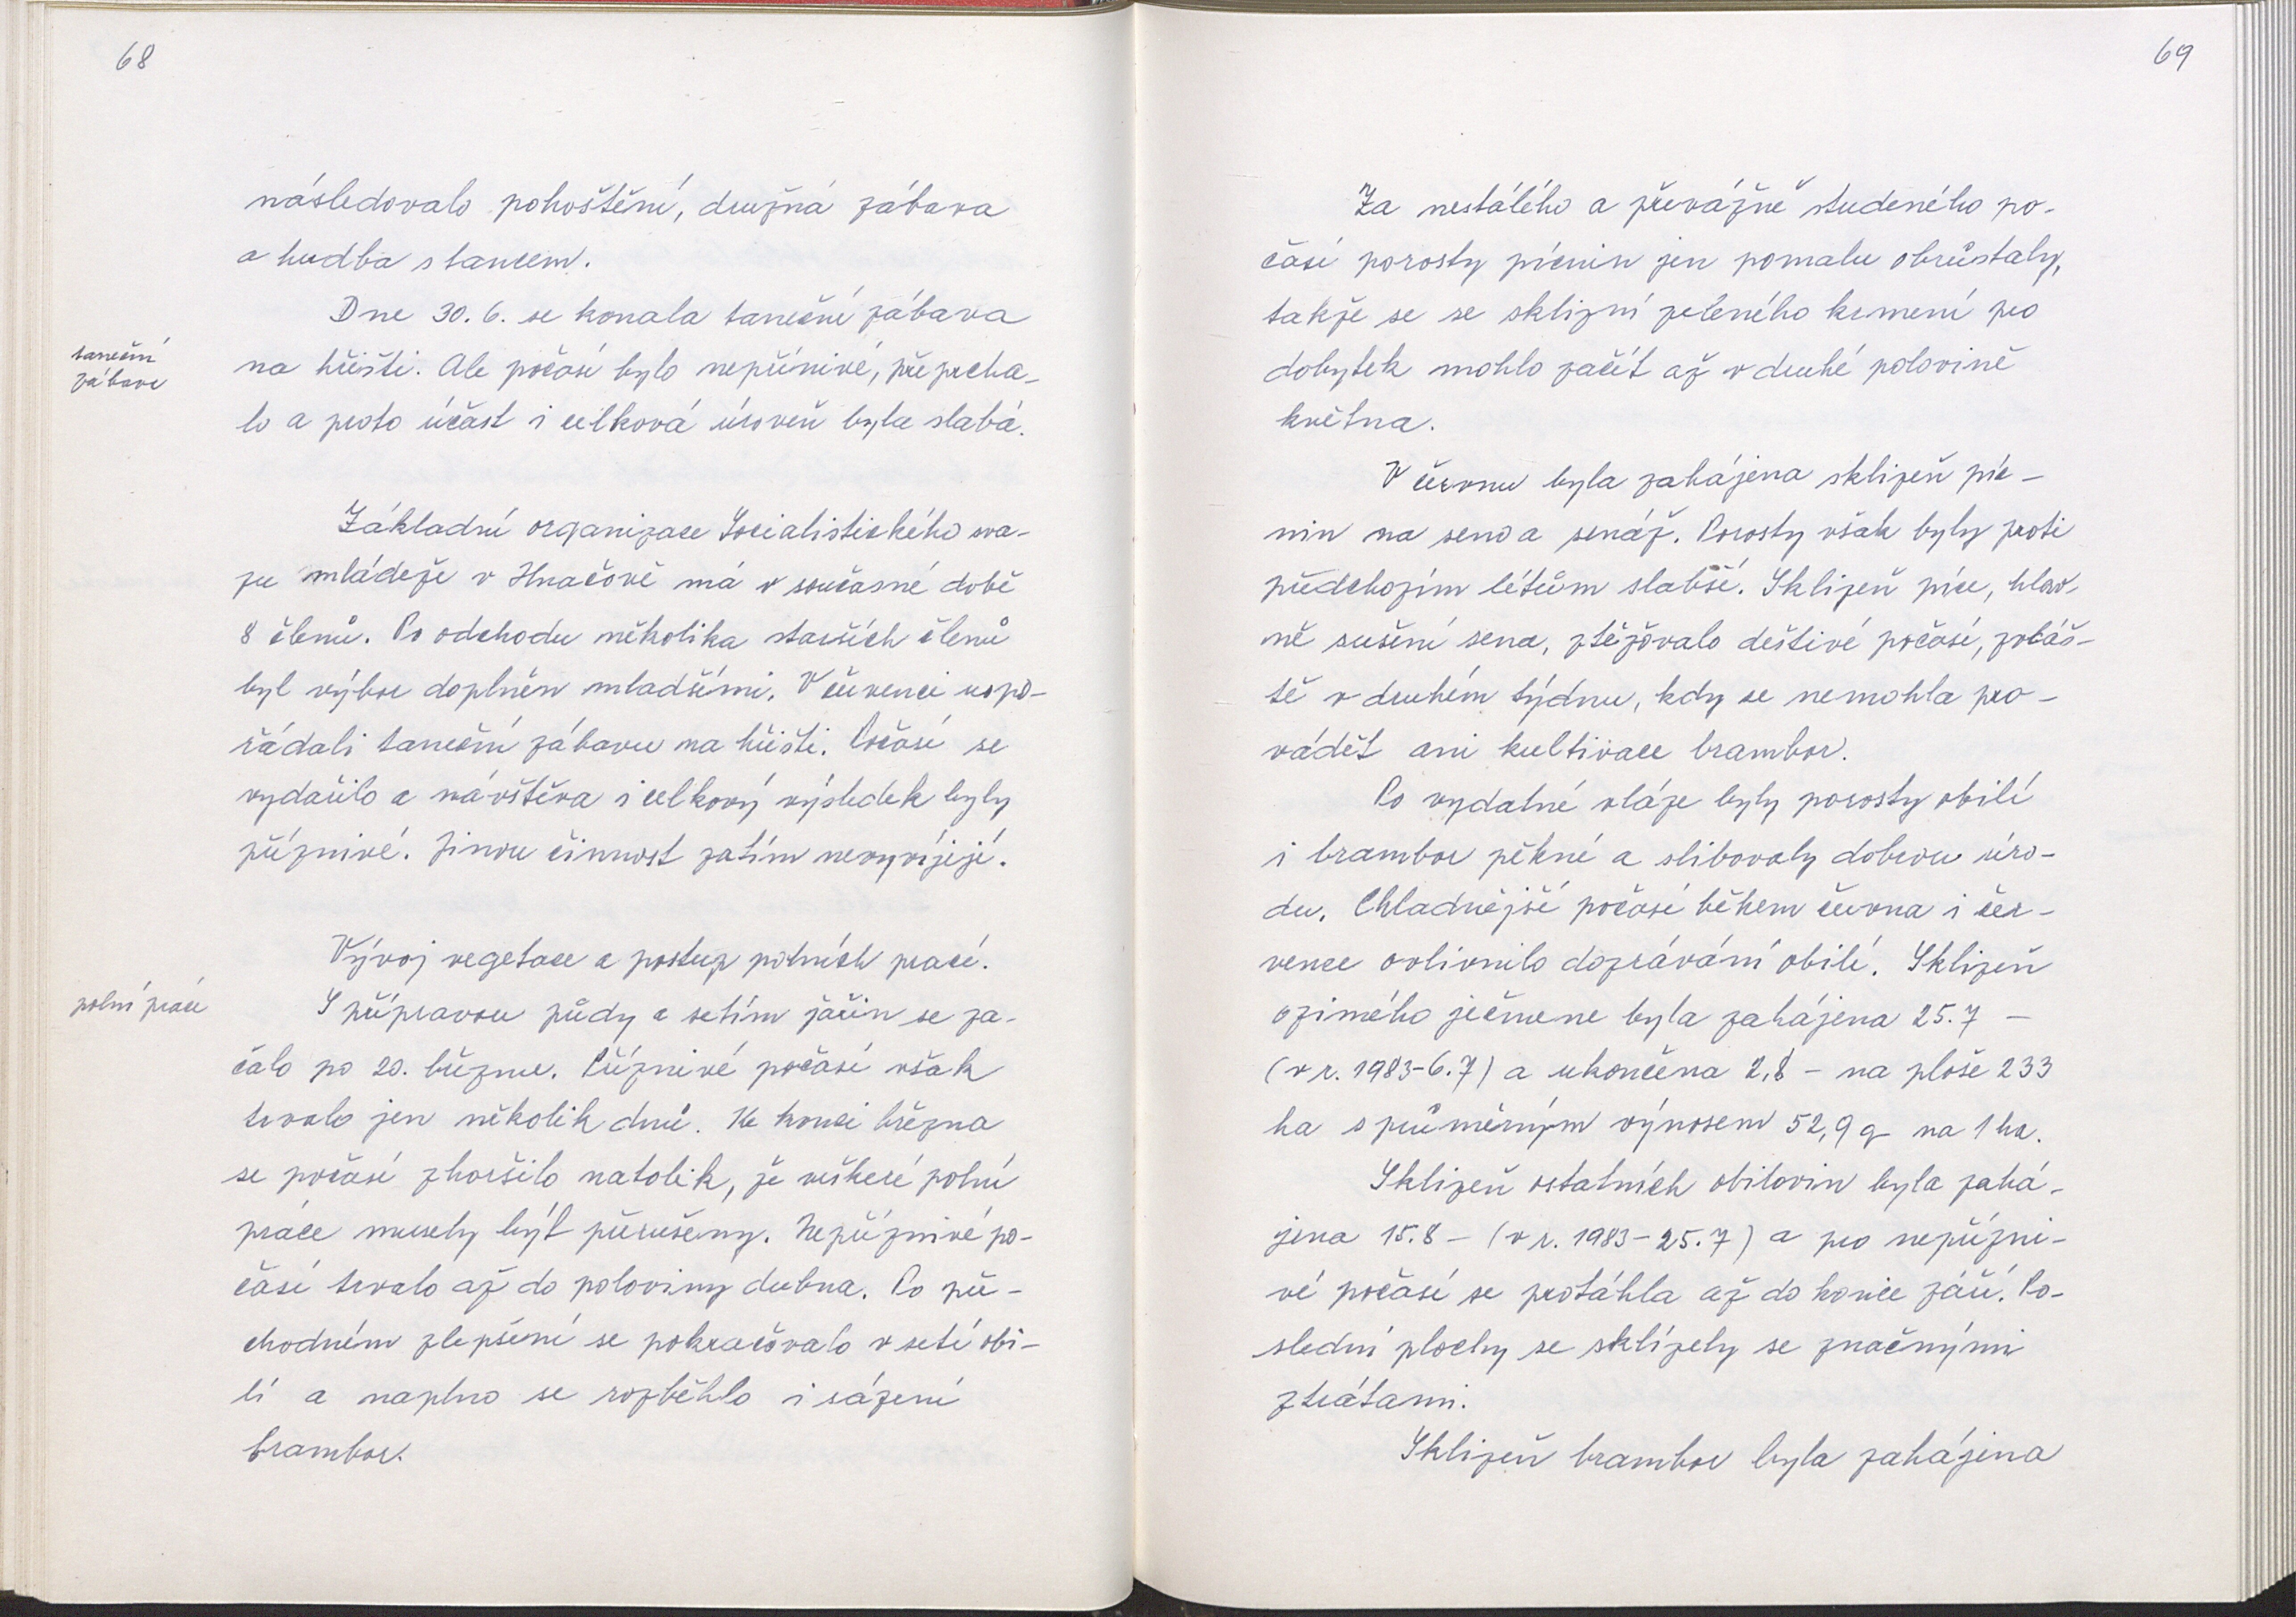 68
následovalo pohoštění, družná zábava
a hudba s tancem.
Dne 30. 6. se konala taneční zábava
taneční
zábava
na hřišti. Ale počasí bylo nepřínivé, přeprcha-
lo a proto účast i celková úroveň byla slabá.
Základní organizace Socialistického sva-
zu mládeže v Hnačově má v současné době
8 členů. Po odchodu několika starších členů
byl výbor doplněn mladšími. V červenci uspo-
řádali taneční zábavu na hřišti. Počasí se
vydařilo a návštěva i celkový výsledek byly
příznivé. Jinou činnost zatím nevyvíjejí.
Vývoj vegetace a postup polních prací.
polní práce
S přípravou půdy a setím jařin se za-
čalo po 20. březnu. Příznivé počasí však
trvalo jen několik dnů. Ke konci března
se počasí zhoršilo natolik, že veškeré polní
práce musely být přerušeny. Nepříznivé po-
časí trvalo až do poloviny dubna. Po pře-
chodném zlepšení se pokračovalo v setí obi-
lí a naplno se rozběhlo i sázení
brambor.
69
Za nestálého a převážně studeného po-
časí porosty pícnin jen pomalu obrůstaly,
takže se se sklizní zeleného krmení pro
dobytek mohlo začít až v druhé polovině
května.
V červnu byla zahájena sklizeň píc-
nin na seno a senáž. Porosty však byly proti
předchozím létům slabší. Sklizeň píce, hlav-
ně sušení sena, ztěžovalo deštivé počasí, zvláš-
tě v druhém týdnu, kdy se nemohla pro-
vádět ani kultivace brambor.
Po vydatné vláze byly porosty obilí
i brambor pěkné a slibovaly dobrou úro-
du. Chladnější počasí během června i čer-
vence ovlivnilo dozrávání obilí. Sklizeň
ozimého ječmene byla zahájena 25. 7 -
(v r. 1983-6.7) a ukončena 2.8 - na ploše 233
ha s průměrným výnosem 52,9 q na 1 ha.
Sklizeň ostatních obilovin byla zahá-
jena 15.8 - (v r. 1983 - 25.7) a pro nepřízni-
vé počasí se protáhla až do konce září. Po-
slední plochy se sklízely se značnými
ztrátami.
Sklizeň brambor byla zahájena